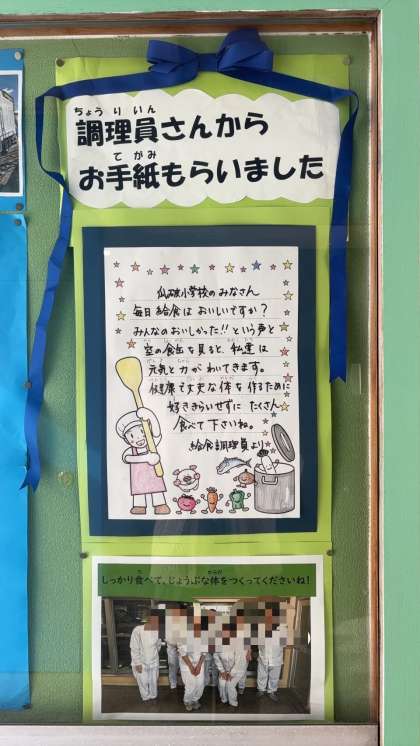 ちょうりいん
調理員さんから
てがみ
お手紙もらいました
瓜破小学校のみなさん
毎日給食はおいしいですか?
みんなのおいしかった!!という声と
空の食缶を見ると、私達は
元気と力がわいてきます。
健康で丈夫な体を作るために
好ききらいせずにたくさん
食べて下さいね。
給食調理員より
た からだ
しっかり食べて、じょうぶな体をつくってくださいね!